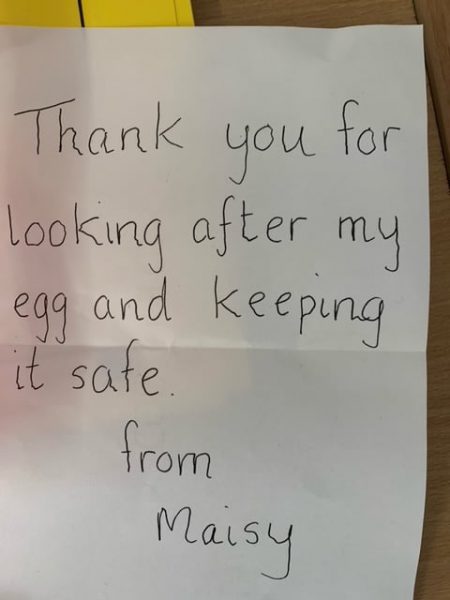 Thank you for
looking after my
egg and keeping
it safe.
from
Maisy